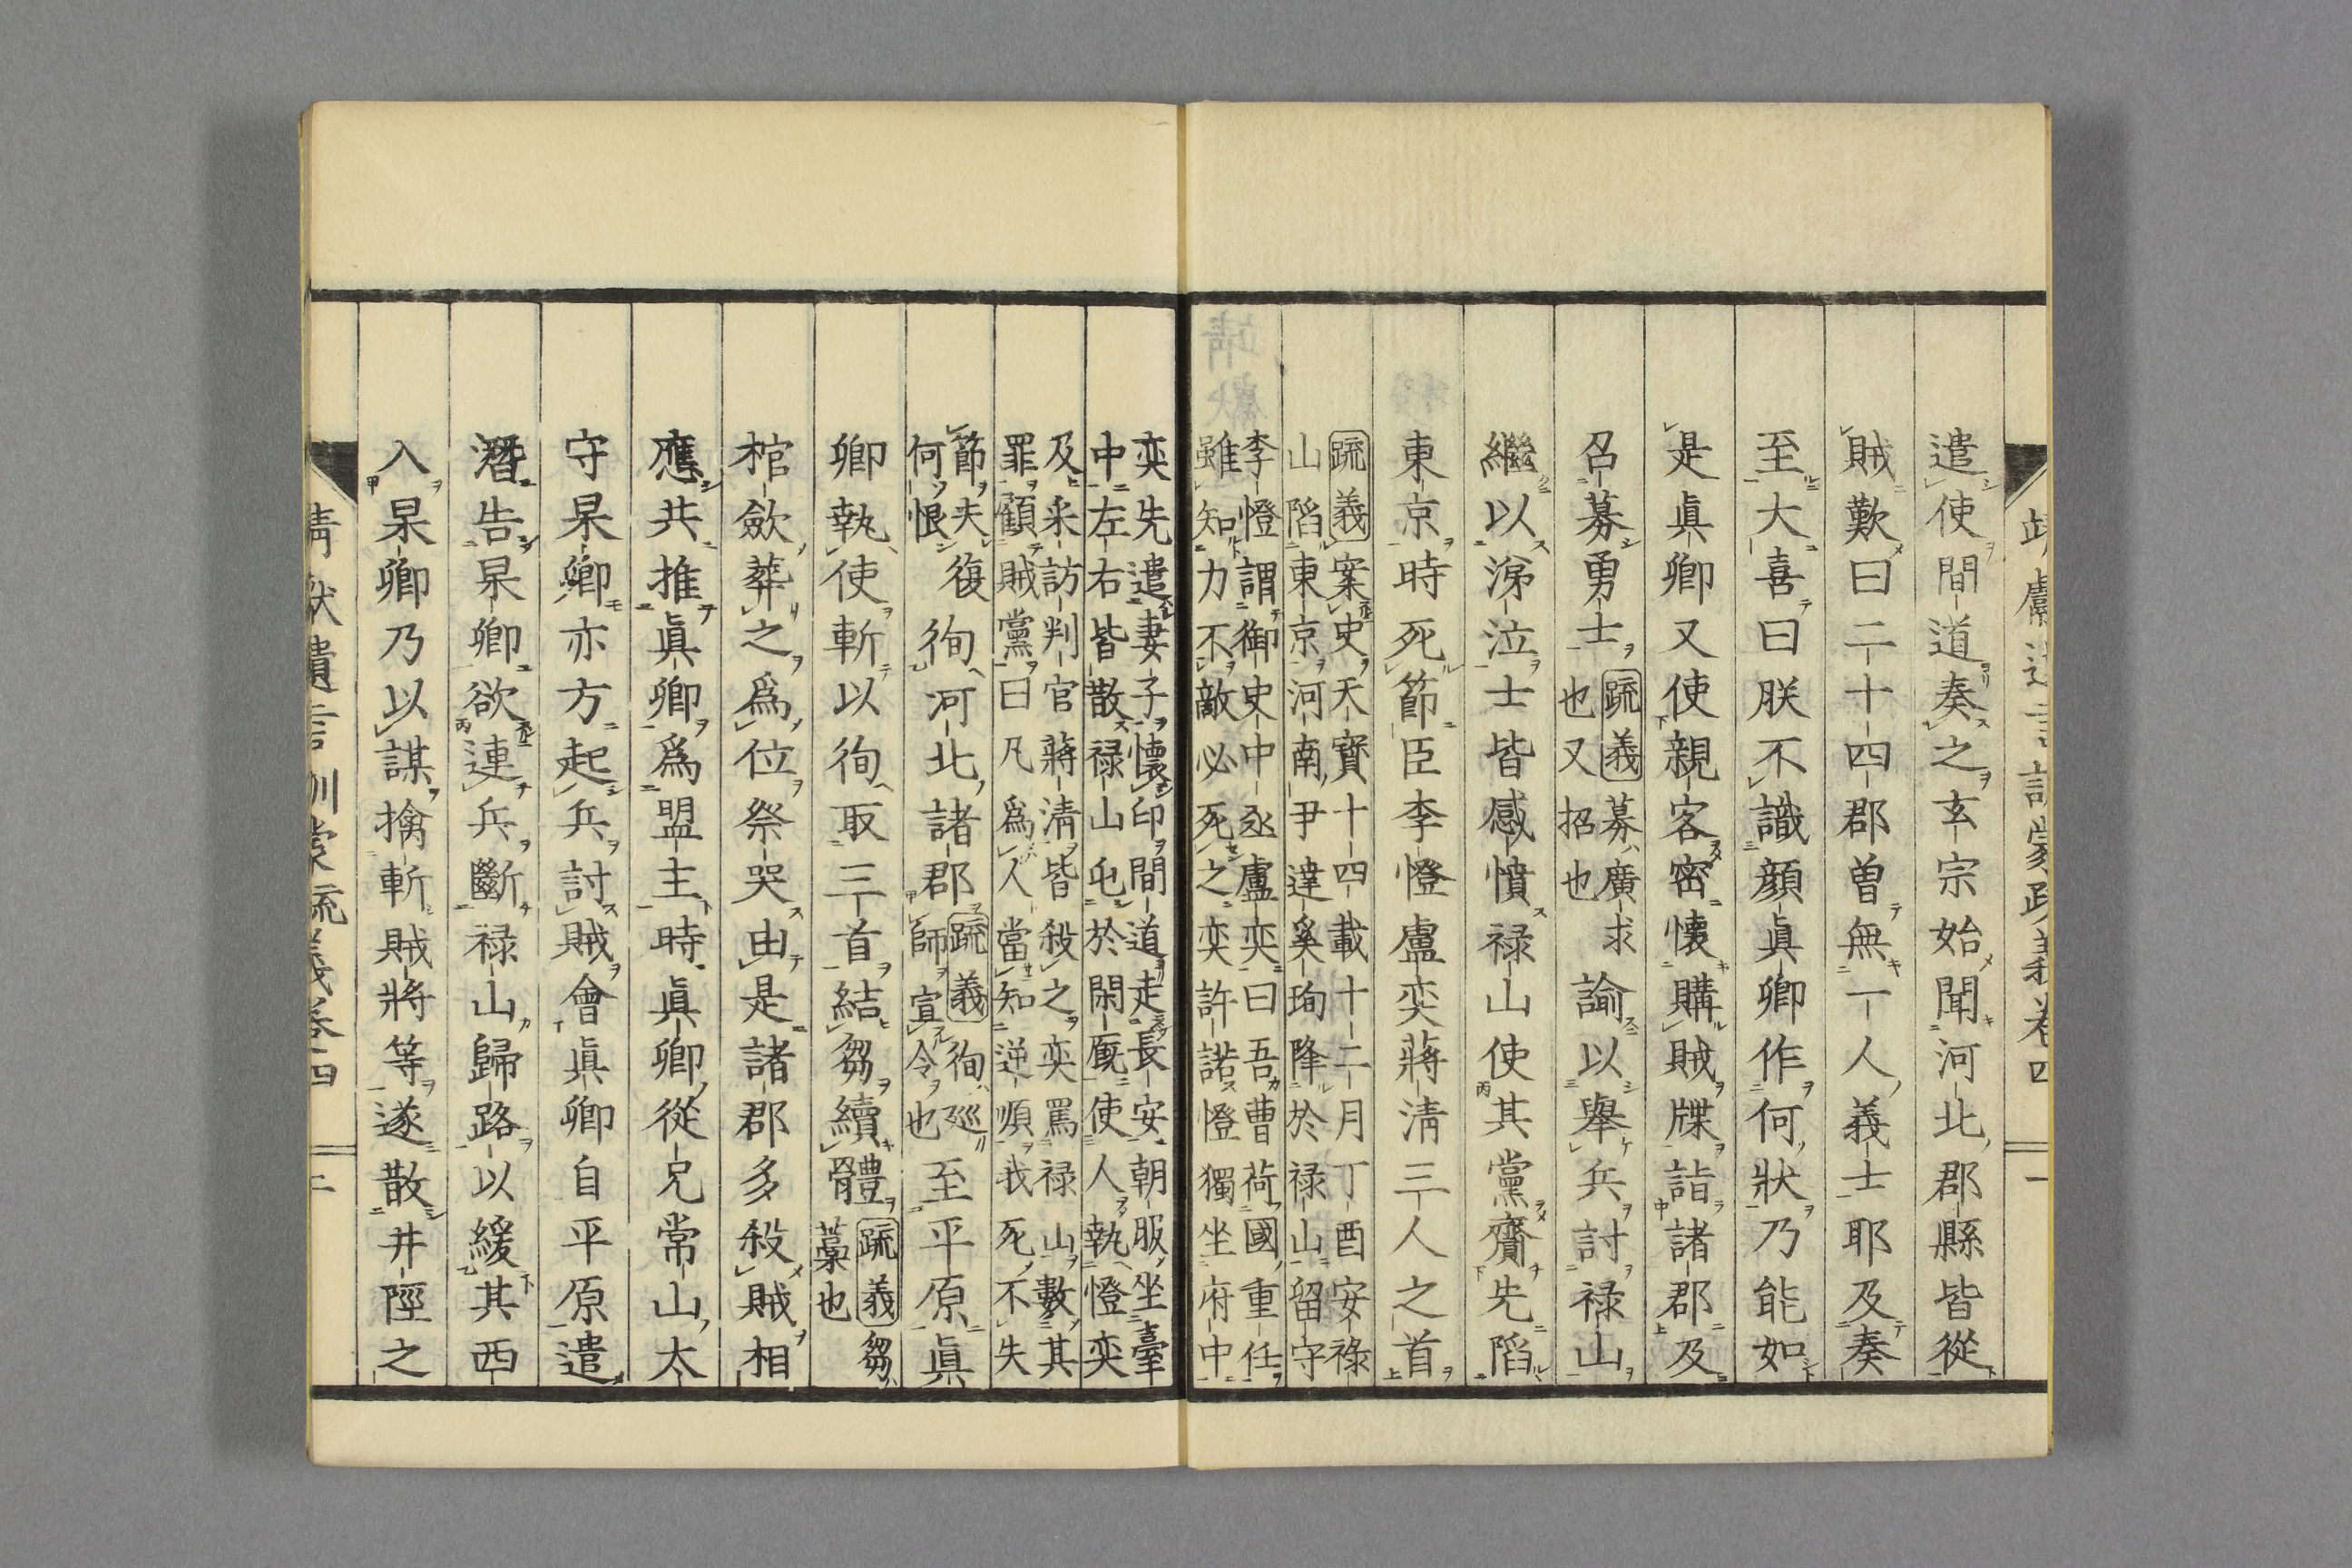 靖獻遺言訓蒙疏義卷四 一
遣使間道奏之玄宗始聞河北郡縣皆從
賊歎曰二十四郡曽無一人義士耶及奏
至大喜曰朕不識顔眞卿作何狀乃能如
是眞卿又使親客密懷購賊牒詣諸郡及
召募勇士疏義募廣求
也又招也諭以舉兵討禄山
繼以涕泣士皆感憤禄山使其黨齎先䧟
東京時死節臣李憕盧奕蔣清三人之首
疏義案史天寳十四載十二月丁酉安祿
山䧟東京河南尹達奚珣降於禄山留守
李憕謂御史中丞盧奕曰吾曹荷國重任
雖知力不敵必死之奕許諾憕獨坐府中
奕先遣妻子懷印間道走長安朝服坐臺
中左右皆散禄山屯於閑廐使人執憕奕
及采訪判官蔣清皆殺之奕罵禄山數其
罪顧賊黨曰凡爲人當知逆順我死不失
節夫復
何恨徇河北諸郡疏義徇廵
師宣令也至平原眞
卿執使斬以徇取三首結芻續體疏義芻
藁也
棺歛葬之爲位祭哭由是諸郡多殺賊相
應共推眞卿爲盟主時眞卿從兄常山太
守杲卿亦方起兵討賊會眞卿自平原遣
潛告杲卿欲連兵斷禄山歸路以緩其西
入杲卿乃以謀擒斬賊將等遂散井陘之
靖獻遺言訓蒙疏義卷四 二